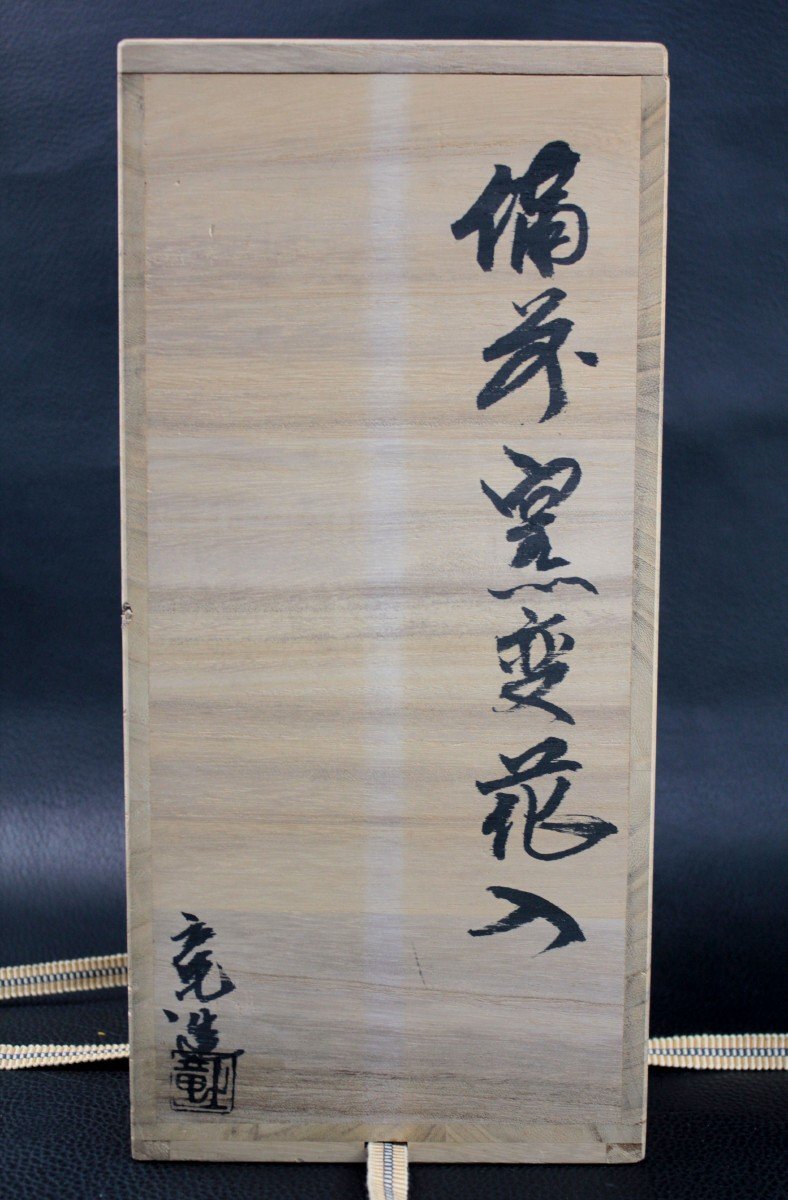 備前窯変花入
竜造